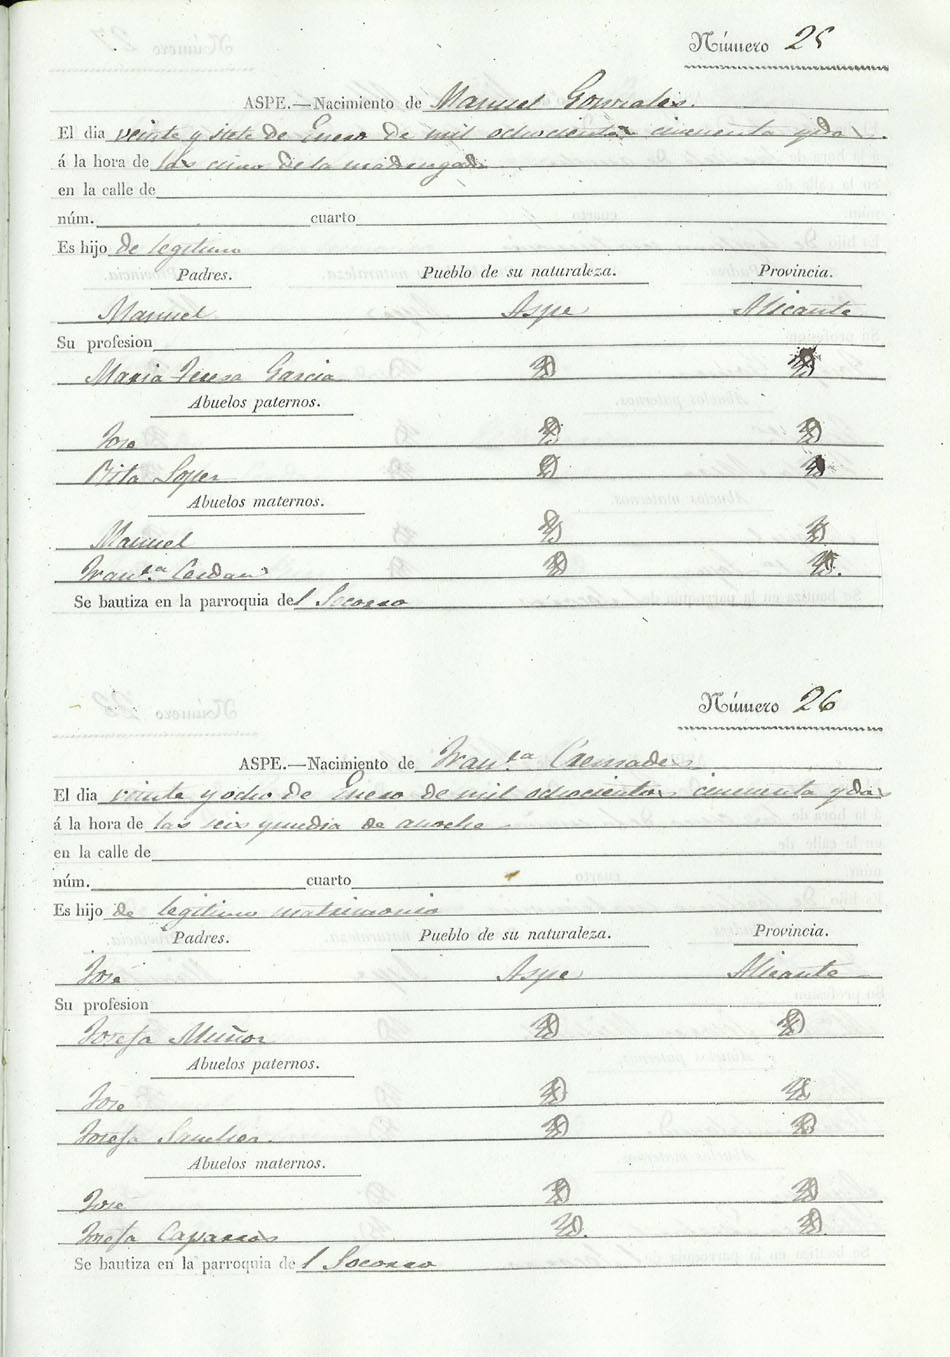 Número 25
ASPE.—Nacimiento de Manuel Gonzales.
El dia veinte y siete de Enero de mil ochocientos cincuenta y dos
á la hora de las cinco de la madrugada
en la calle de
núm. cuarto
Es hijo de legitimo
Padres. Pueblo de su naturaleza. Provincia.
Manuel Aspe Alicante
Su profesion
Maria Teresa Garcia
Abuelos paternos.
Jose
Rita Soper
Abuelos maternos.
Manuel
Fran.ca Cerdan
Se bautiza en la parroquia del Socorro
Número 26
ASPE.—Nacimiento de Fran.ca Cremades
El dia veinte y ocho de Enero de mil ochocientos cincuenta y dos
á la hora de las seis y media de anoche
en la calle de
núm. cuarto
Es hijo de legitimo matrimonio
Padres. Pueblo de su naturaleza. Provincia.
José Aspe Alicante
Su profesion
Josefa Muñoz
Abuelos paternos.
Jose
Josefa Sanchez.
Abuelos maternos.
José
Josefa Caparros
Se bautiza en la parroquia del Socorro